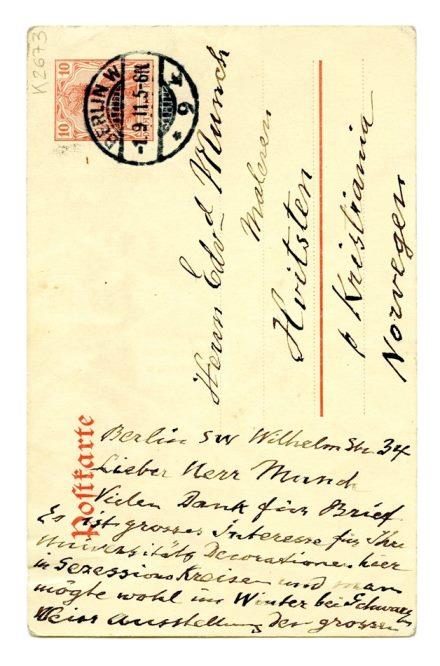 K2673
10 10
BERLIN W
-1.9.11.5-6N.
* 9 k
Herrn Edvd Munch
Maleren
Hvitsten
p Kristiania
Norwegen
Postkarte
Berlin SW Wilhelm Str 34
Lieber Herr Munch
Vielen Dank für Brief
Es ist grosses Interesse für Ihre
Universitäts Decorationen hier
in Sezessions Kreisen und man
mögte wohl im Winter bei Schwarz
Weiss Ausstellung der grossen